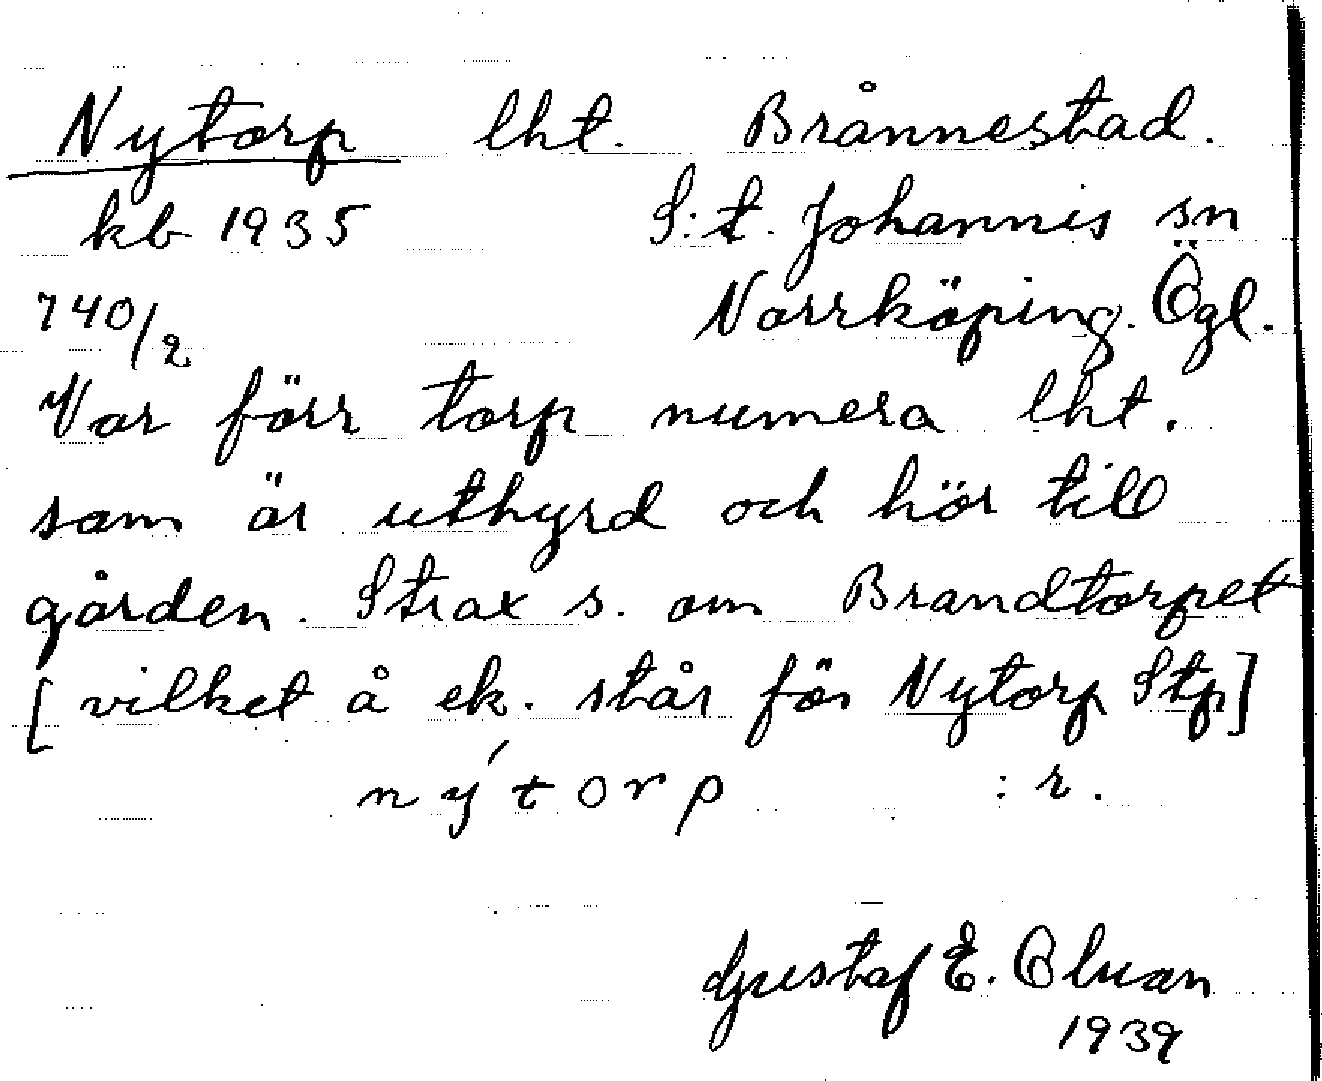 Nytorp lht. Brånnestad.
kb 1935 S:t. Johannis sn
740/2 Norrköping. Ögl.
Var förr torp numera lht.
som är uthyrd och hör till
gården. Strax s. om Brandtorpet
[vilket å ek. står för Nytorp Stp]
nýtorp :r.
Gustaf E.
1939